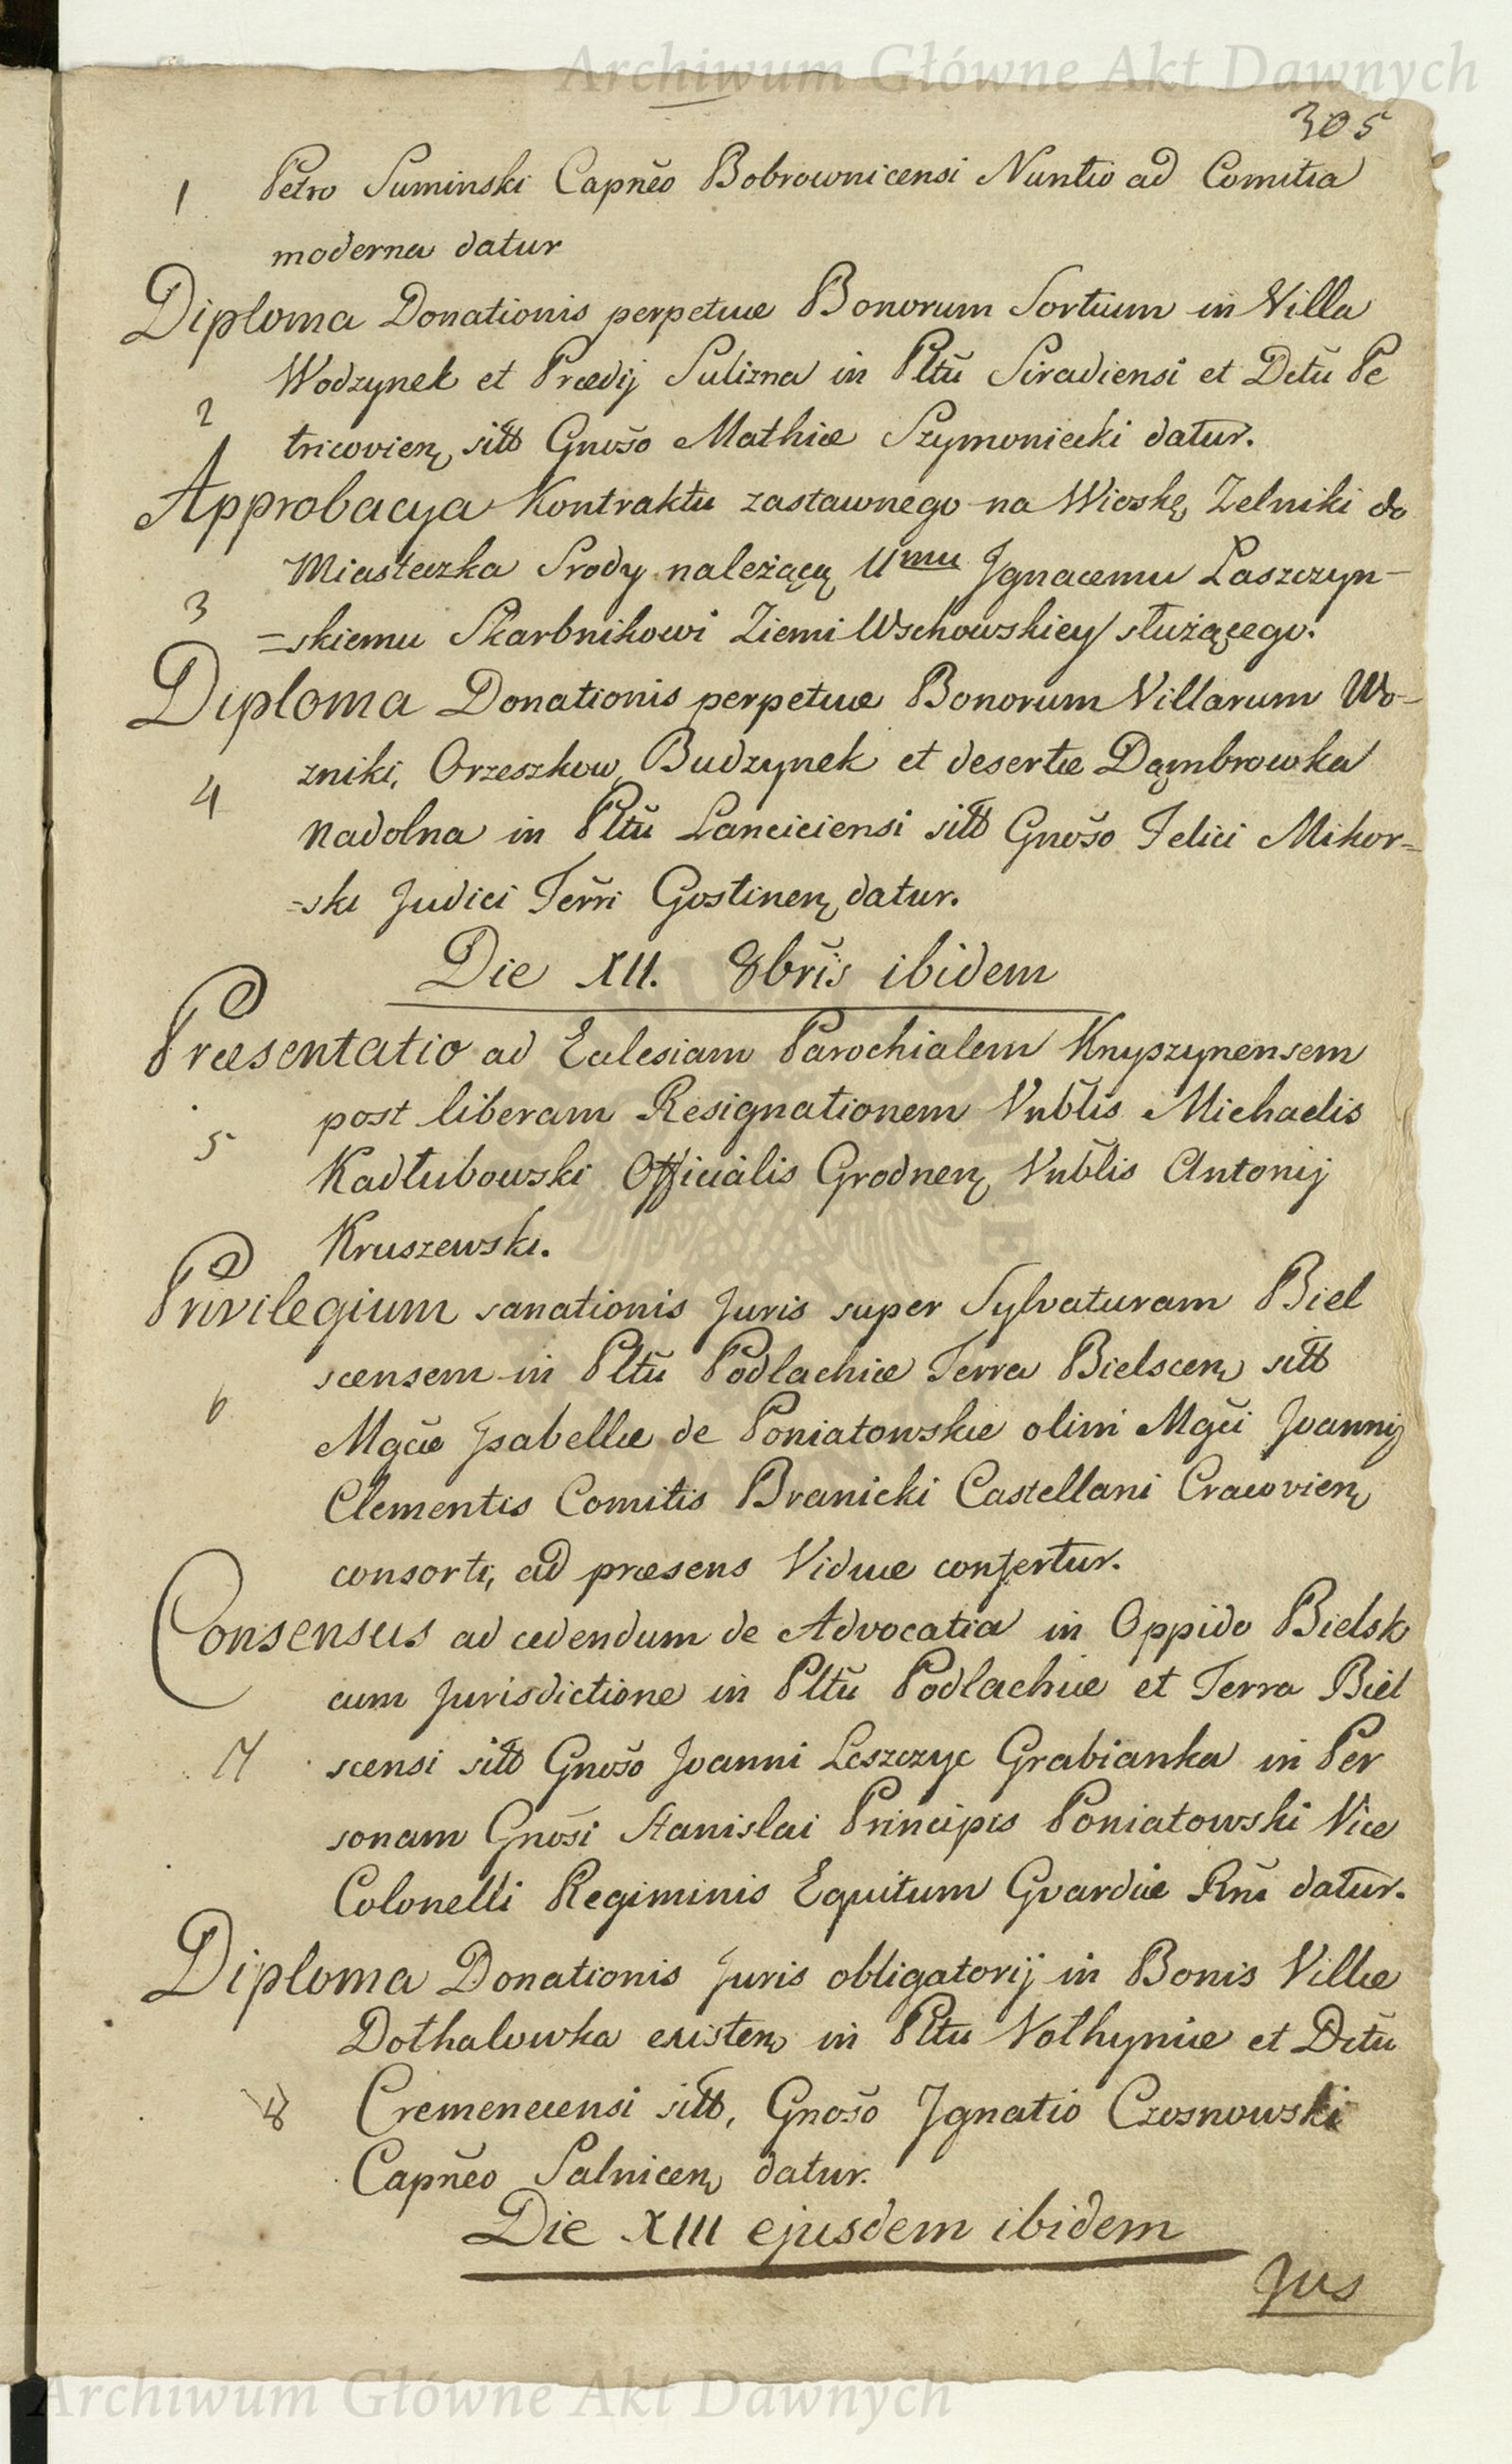 Archiwum Główne Akt Dawnych
305
1 Petro Suminski Capnẽo Bobrownicensi Nuntio ad Comitia
moderna datur
Diploma Donationis perpetuæ Bonorum Sortium in Villa
Wodzynek et Prædij Sulizna in Pltũ Siradiensi et Dctũ Pe
2 tricovien, sitt Gnošo Mathiæ Szymoniecki datur.
Approbacya Kontraktu zastawnego na Wioskę Zelniki do
Miasteczka Srody należącą Umu Jgnacemu Laszczyn-
3 =skiemu Skarbnikowi Ziemi Wschowskiey służącego.
Diploma Donationis perpetuæ Bonorum Villarum Wo-
zniki, Orzeszkow, Budzynek et desertæ Dąmbrowka
4 Nadolna in Pltũ Lanciciensi sitt Gnošo Felici Mikor=
=ski Judici Terři Gostinen, datur.
Die XII. 8břis ibidem
Præsentatio ad Ecclesiam Parochialem Knyszynensem
post liberam Resignationem Vnblis Michaelis
5 Kadłubowski Officialis Grodnen, Vnblis Antonij
Kruszewski.
Privilegium sanationis Juris super Sylvaturam Biel
scensem in Pltũ Podlachiæ Terra Bielscen, sitt
6 Mgčæ Jsabellæ de Poniatowskie olim Mgči Joannij
Clementis Comitis Branicki Castellani Cracovien,
consorti, ad præsens Viduæ confertur.
Consensus ad cedendum de Advocatia in Oppido Bielsk
cum Jurisdictione in Pltũ Podlachiæ et Terra Biel
7 scensi sitt Gnošo Joanni Leszczyc Grabianka in Per
sonam Gnoši Stanislai Principis Poniatowski Vice
Colonelli Regiminis Equitum Gvardiæ Rñi datur.
Diploma Donationis Juris obligatorij in Bonis Villæ
Dothalowka existen, in Pltũ Volhyniæ et Dctũ
8 Cremenecensi sitt, Gnošo Jgnatio Czosnowski
Capnẽo Salnicen, datur.
Die XIII ejusdem ibidem
Jus
Archiwum Główne Akt Dawnych